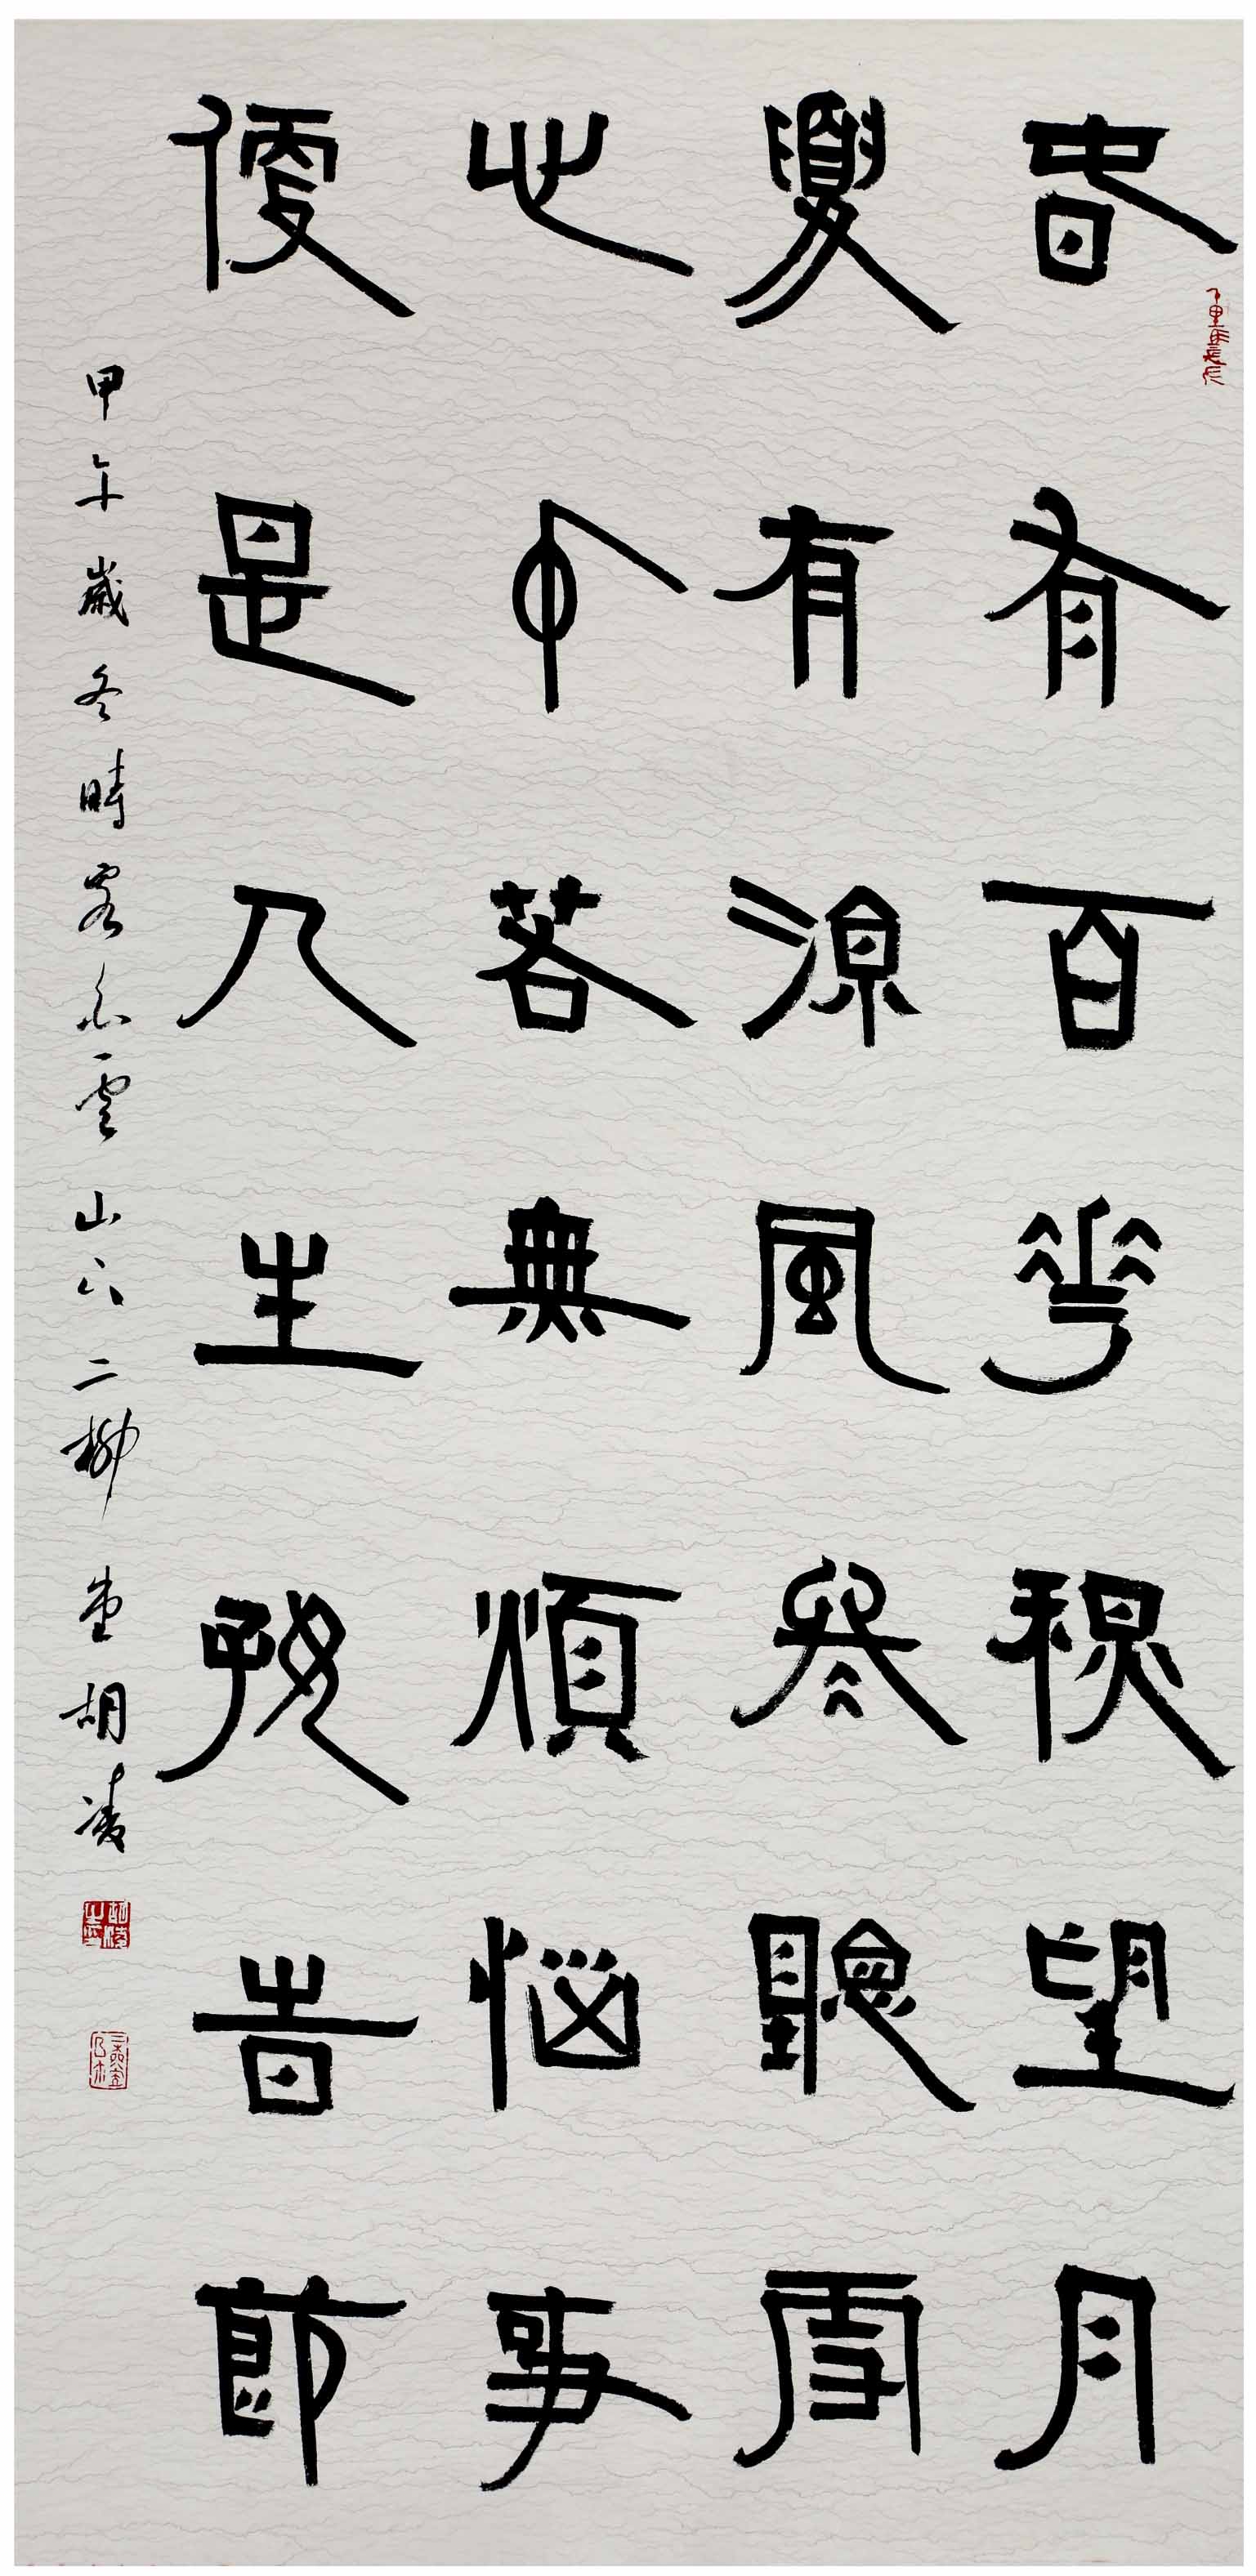 春有百花秋望月
夏有涼風冬聽雪
心中若無煩惱事
便是人生好時節
甲午歲冬時客白雲山下二柳堂胡凌